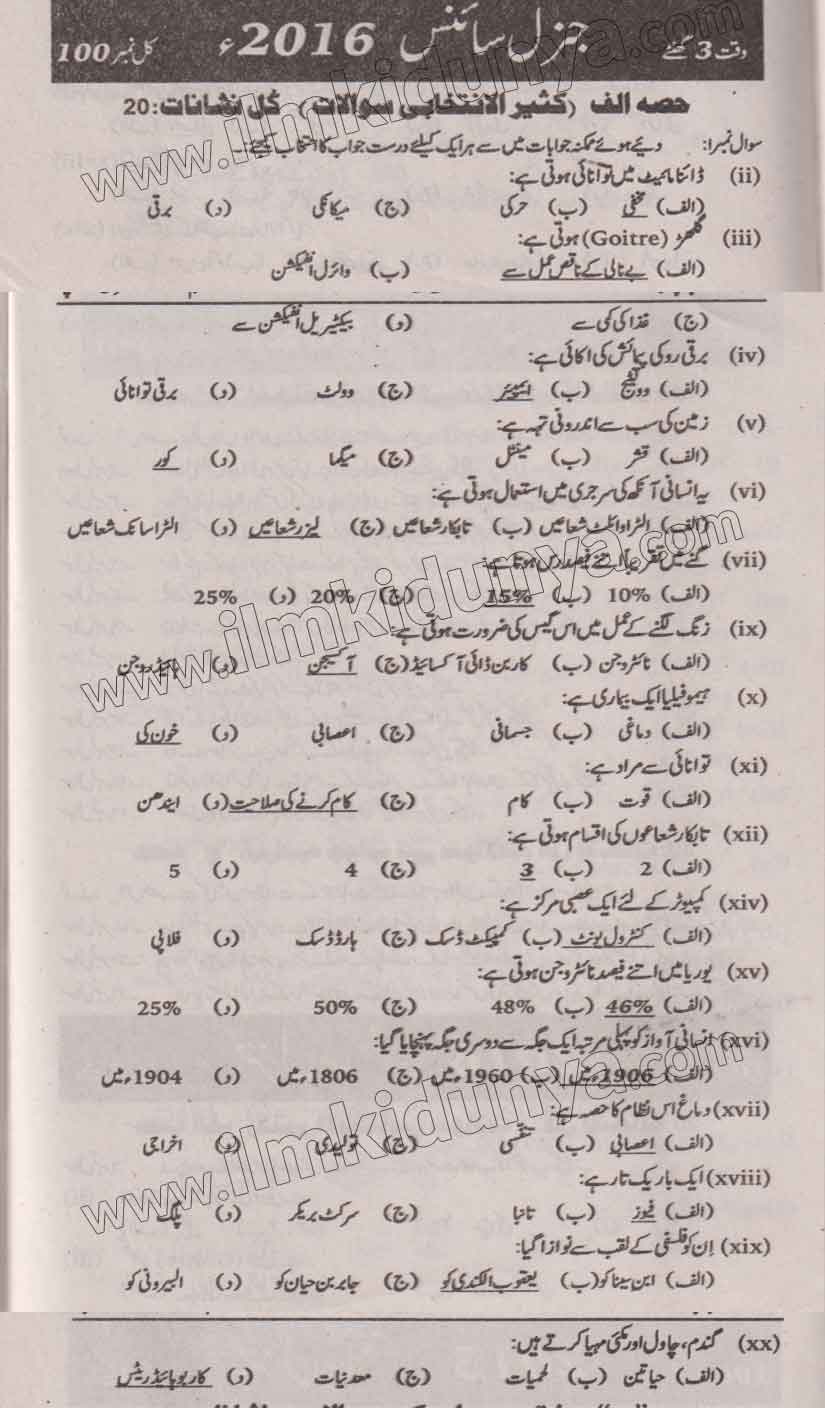 وقت 3 گھنٹے جنرل سائنس 2016ء کل نمبر 100
حصہ الف (کثیر الانتخابی سوالات) کُل نشانات: 20
سوال نمبر1: دیئے ہوئے ممکنہ جوابات میں سے ہر ایک کیلئے درست جواب کا انتخاب کیجئے:۔
(ii) ڈائنامائیٹ میں توانائی ہوتی ہے:
(الف) مخفی (ب) حرکی (ج) میکانکی (د) برقی
(iii) گلھڑ (Goitre) ہوتی ہے:
(الف) بے نالی کے ناقص عمل سے (ب) وائرل انفیکشن
(ج) غذا کی کمی سے (د) بیکٹیریل انفیکشن سے
(iv) برقی رو کی پیمائش کی اکائی ہے:
(الف) وولٹیج (ب) ایمپیئر (ج) وولٹ (د) برقی توانائی
(v) زمین کی سب سے اندرونی تہہ ہے:
(الف) قشر (ب) مینٹل (ج) میگما (د) کور
(vi) یہ انسانی آنکھ کی سرجری میں استعمال ہوتی ہے:
(الف) الٹراوائلٹ شعاعیں (ب) تابکار شعاعیں (ج) لیزر شعاعیں (د) الٹراسانک شعاعیں
(vii) گنے میں تقریباً اتنے فیصد رس ہوتا ہے:
(الف) 10% (ب) 15% (ج) 20% (د) 25%
(ix) زنگ لگنے کے عمل میں اس گیس کی ضرورت ہوتی ہے:
(الف) نائٹروجن (ب) کاربن ڈائی آکسائیڈ (ج) آکسیجن (د) ہائیڈروجن
(x) ہیموفیلیا ایک بیماری ہے:
(الف) دماغی (ب) جسمانی (ج) اعصابی (د) خون کی
(xi) توانائی سے مراد ہے:
(الف) قوت (ب) کام (ج) کام کرنے کی صلاحیت (د) ایندھن
(xii) تابکار شعاعوں کی اقسام ہوتی ہے:
(الف) 2 (ب) 3 (ج) 4 (د) 5
(xiv) کمپیوٹر کے لئے ایک عصبی مرکز ہے:
(الف) کنٹرول یونٹ (ب) کمپیکٹ ڈسک (ج) ہارڈ ڈسک (د) فلاپی
(xv) یوریا میں اتنے فیصد نائٹروجن ہوتی ہے:
(الف) 46% (ب) 48% (ج) 50% (د) 25%
(xvi) انسانی آواز کو پہلی مرتبہ ایک جگہ سے دوسری جگہ پہنچایا گیا:
(الف) 1906ء میں (ب) 1960ء میں (ج) 1806ء میں (د) 1904ء میں
(xvii) دماغ اس نظام کا حصہ ہے:
(الف) اعصابی (ب) تنفسی (ج) تولیدی (د) اخراجی
(xviii) ایک باریک تار ہے:
(الف) فیوز (ب) تانبا (ج) سرکٹ بریکر (د) پلگ
(xix) اِن کو فلسفی کے لقب سے نوازا گیا:
(الف) ابن سینا کو (ب) یعقوب الکندی کو (ج) جابر بن حیان کو (د) البیرونی کو
(xx) گندم، چاول اور مکئی مہیا کرتے ہیں:
(الف) حیاتین (ب) لحمیات (ج) معدنیات (د) کاربوہائیڈریٹس
www.ilmkidunya.com
www.ilmkidunya.com
www.ilmkidunya.com